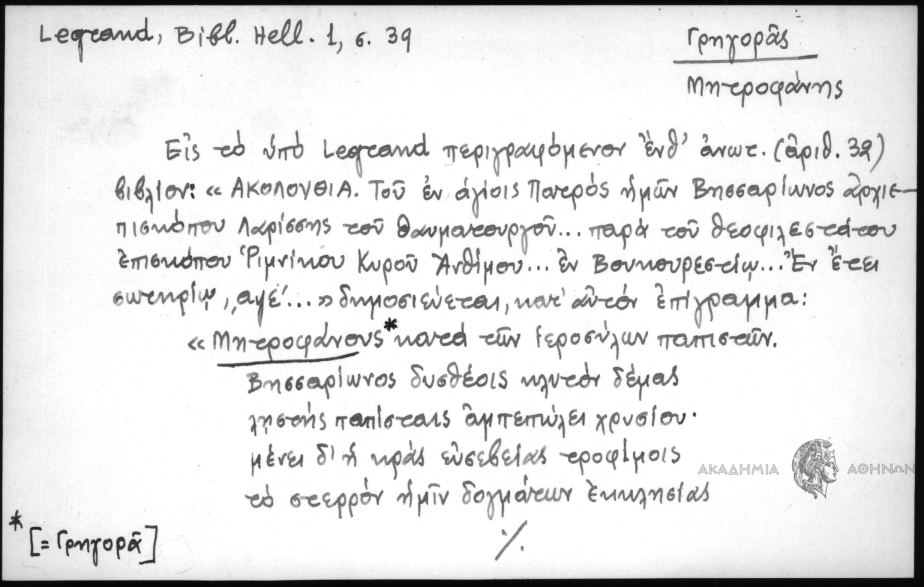 Legrand, Bibl. Hell. 1, σ. 39
Γρηγορᾶς
Μητροφάνης
Εἰς τὸ ὑπὸ Legrand περιγραφόμενον ἔνθ' ἀνωτ. (ἀριθ. 32)
βιβλίον: « ΑΚΟΛΟΥΘΙΑ. Τοῦ ἐν ἁγίοις Πατρός ἡμῶν Βησσαρίωνος ἀρχιε-
πισκόπου Λαρίσσης τοῦ θαυματουργοῦ... παρὰ τοῦ θεοφιλεστάτου
ἐπισκόπου Ῥιμνίκου Κυροῦ Ἀνθίμου... ἐν Βουκουρεστίῳ... Ἐν ἔτει
σωτηρίῳ, αψέ... » δημοσιεύεται, κατ' αὐτόν ἐπίγραμμα:
« Μητροφάνους* κατὰ τῶν ἱεροσύλων παπιστῶν.
Βησσαρίωνος δυσθέοις κλυτόν δέμας
λῃστής παπίσταις ἀμπεπώλει χρυσίου·
μένει δ' ἡ κρὰς εὐσεβείας τροφίμοις
τὸ στερρόν ἡμῖν δογμάτων ἐκκλησίας
ΑΚΑΔΗΜΙΑ ΑΘΗΝΩΝ
* [= Γρηγορᾶ]
·/.